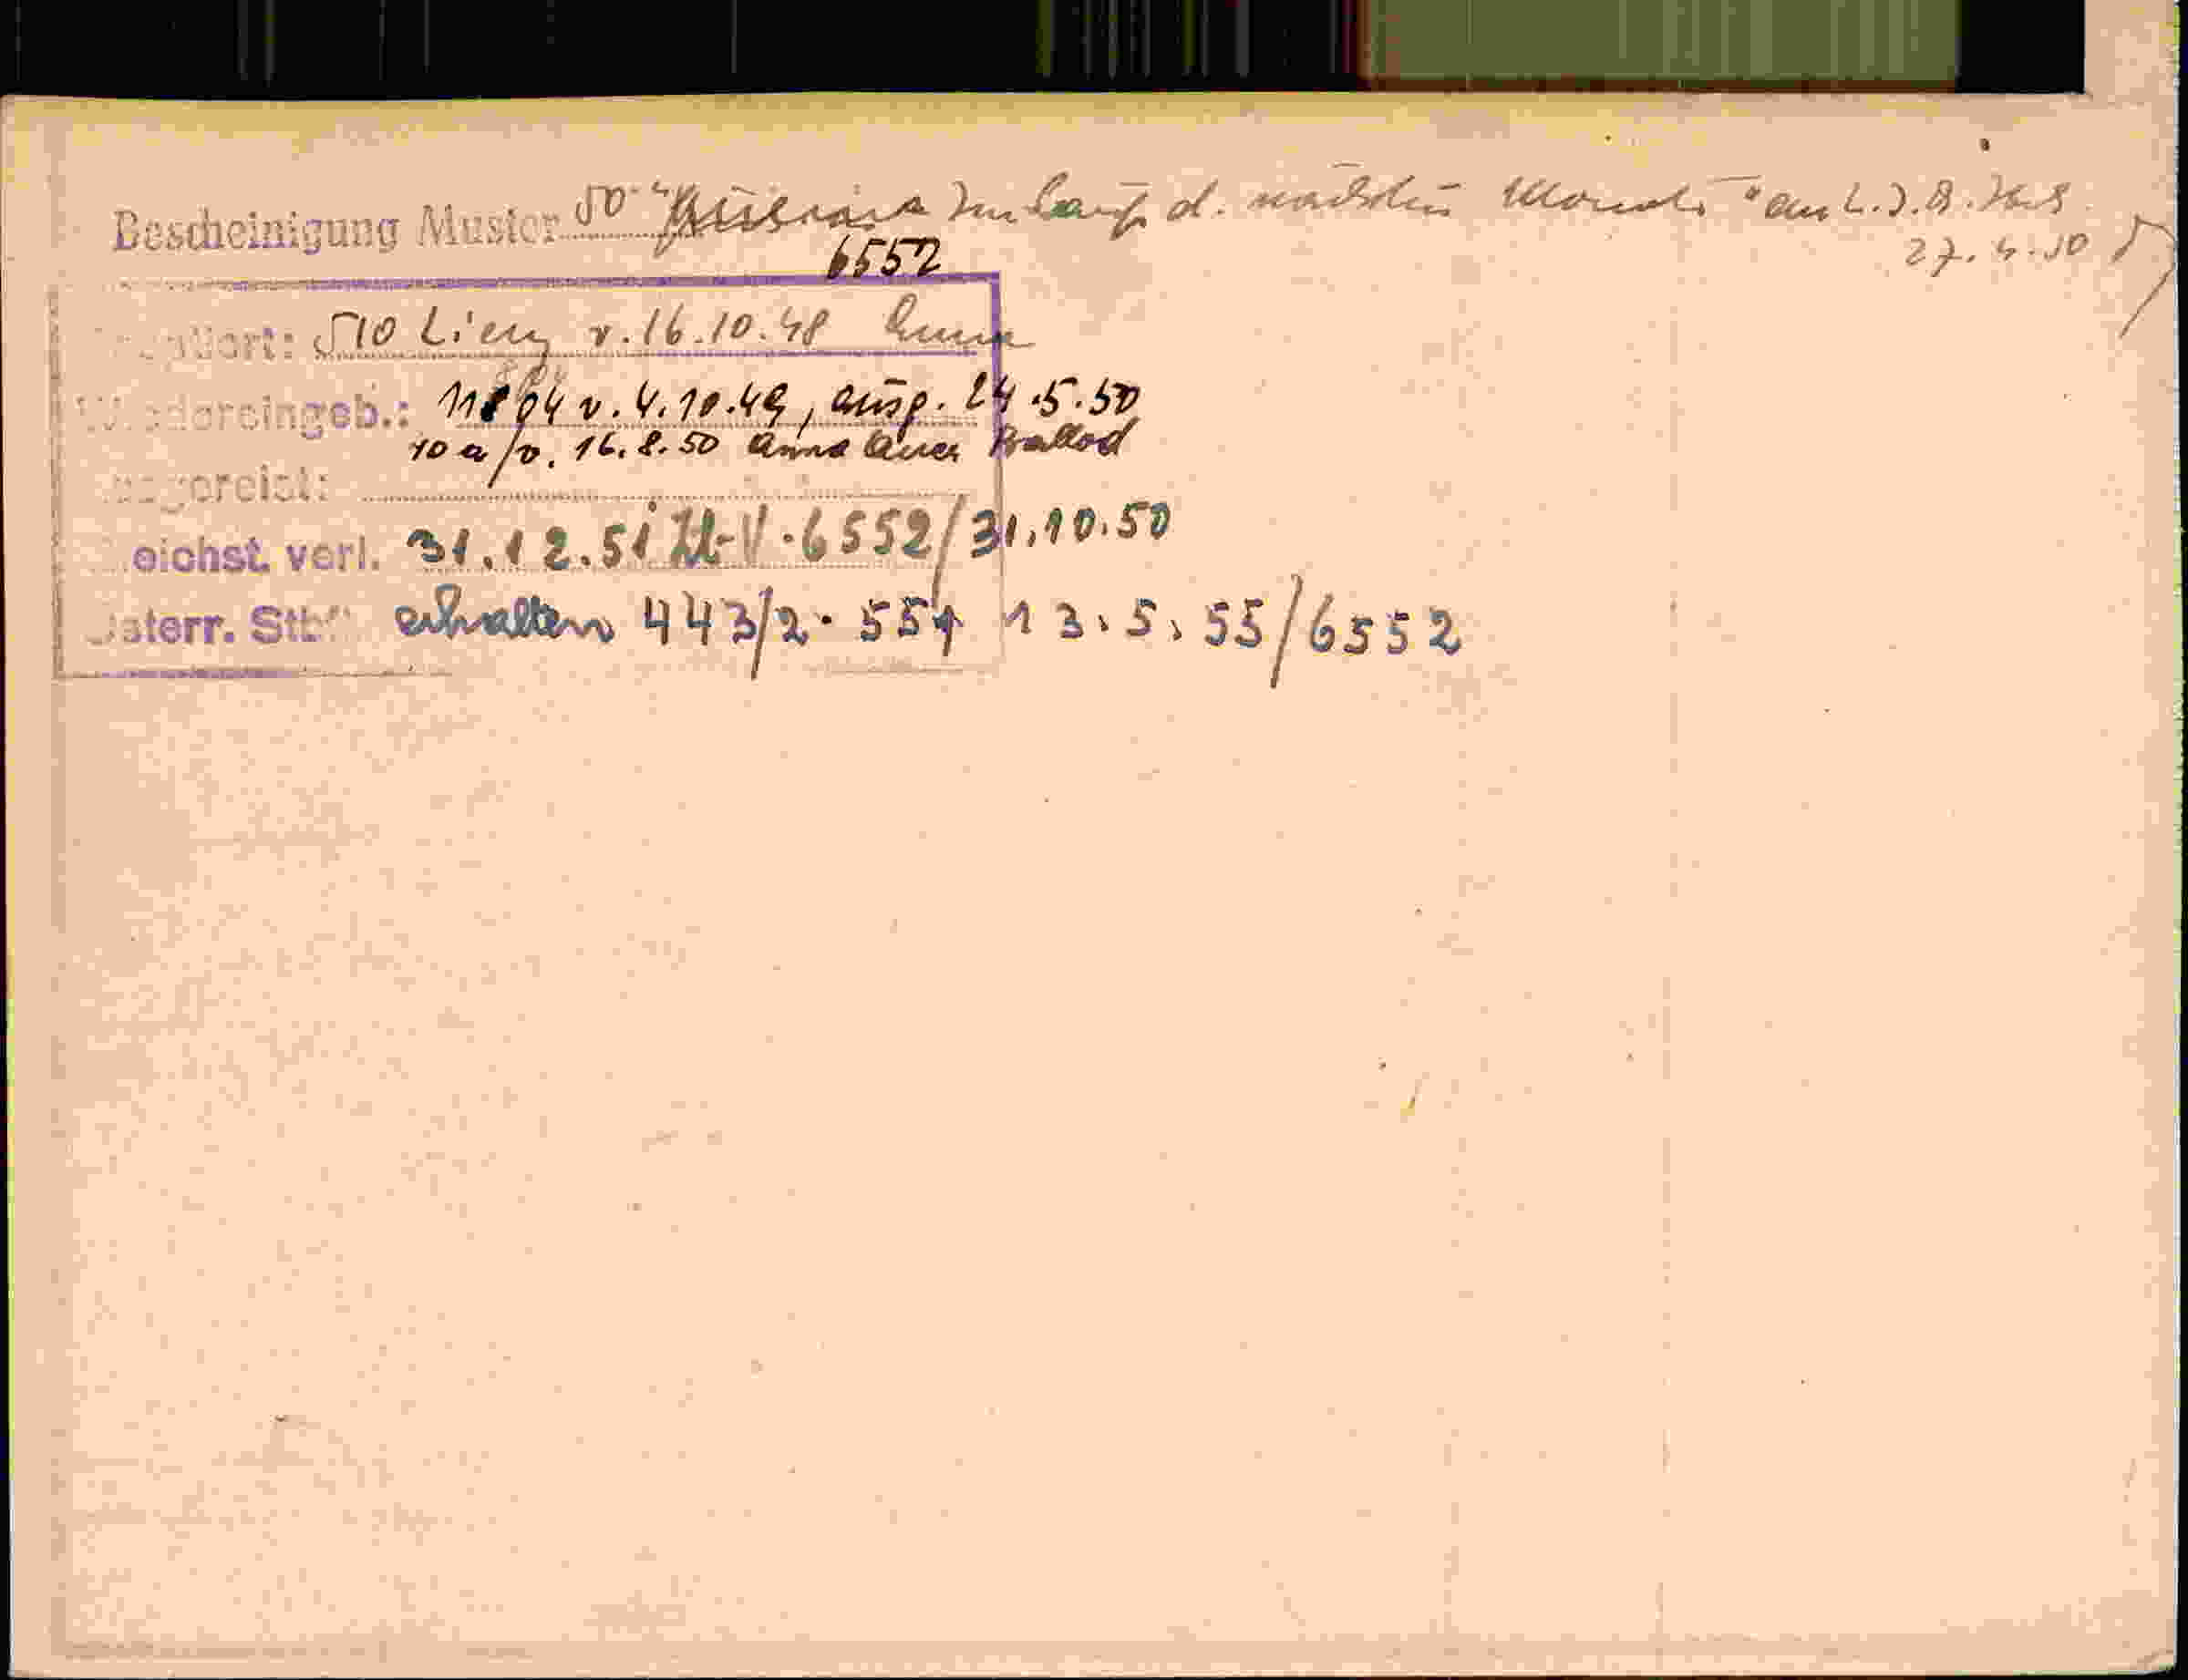 Bescheinigung Muster 50 " im Lauf d. nächsten Monats " an
6552
27.4.50
510 Lienz v. 16.10.48
Wiedereingeb.: 11804 v. 4.10.49, ausg. 24.5.50
10a/v. 16.8.50 Anna Auer Ballod
eichst. verl. 31.12.51 6552/31.10.50
sterr. Stb erhalten 443/2-551 13.5.55/6552